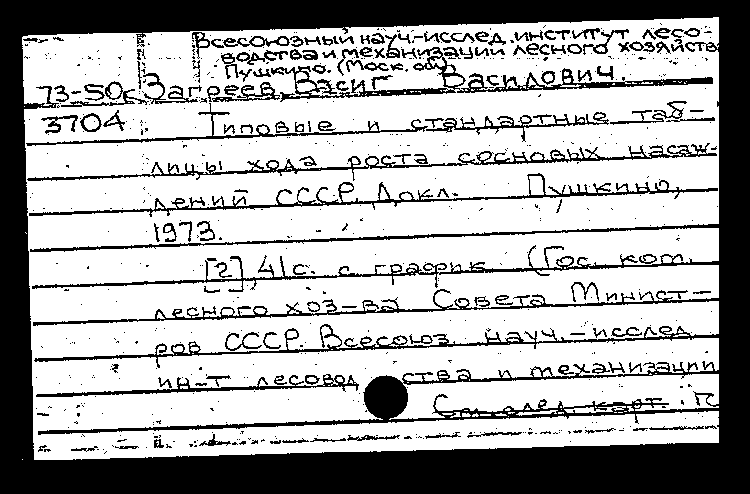 Всесоюзный науч.-исслед. институт лесо-
водства и механизации лесного хозяйства
Пушкино. (Моск. обл)
73-50с Загреев, Васиг Василович.
3704 Типовые и стандартные таб-
лицы хода роста сосновых насаж-
дений СССР. Докл. Пушкино,
1973.
[2], 41с. с график (Гос. ком.
лесного хоз-ва Совета Минист-
ров СССР. Всесоюз. науч.-исслед
ин-т лесоводства и механизации
См. след. карт.